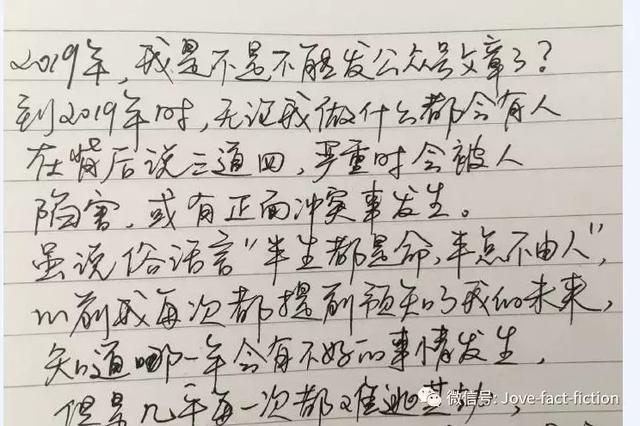 2019年,我是不是不能发公众号文章了?
到2019年时,无论我做什么都会有人
在背后说三道四,严重时会被人
陷害,或有正面冲突事发生。
虽说俗话言"半生都是命,半点不由人",
以前我每次都提前预知了我的未来,
知道哪一年会有不好的事情发生,
但是几乎每一次都难逃其劫,
微信号: Jove-fact-fiction